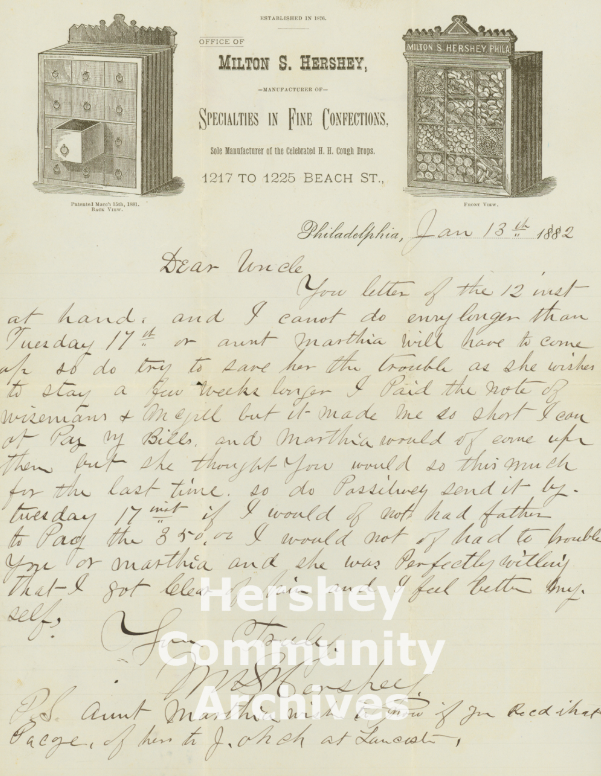 ESTABLISHED IN 1876.
OFFICE OF
MILTON S. HERSHEY,
—MANUFACTURER OF—
SPECIALTIES IN FINE CONFECTIONS,
Sole Manufacturer of the Celebrated H. H. Cough Drops.
1217 TO 1225 BEACH ST.,
MILTON S. HERSHEY, PHILA
Patented March 15th, 1881.
Back View.
Front View.
Philadelphia, Jan 13th 1882
Dear Uncle
You letter of the 12 inst
at hand. and I canot do enny longer than
Tuesday 17th or aunt Marthia will have to come
up so do try to save her the trouble as she wishes
to stay a few weeks longer I Paid the note of
Wizemans & Mcgill but it made me so short I can
ot Pay my Bills. and Marthia would of come upr
then but she thought You would so this much
for the last time. so do Possibwey send it by.
tuesday 17 inst if I would of not had father
to Pay the 350.00 I would not of had to trouble
You or marthia and she was Perfectly willing
that I got Clear of him and I feel better my.
self.
Your Truly.
M. S. Hershey
P.S. Aunt Marthia wish to know if you Recd that
Pacge. of hers to J. at Lancaster.
Hershey
Community
Archives